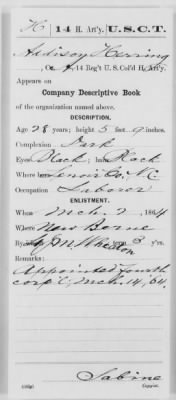 H 14 H. Art'y. U.S.C.T.
Addison Herring
Co. , 14 Reg't U. S. Col'd H. Art'y.
Appears on
Company Descriptive Book
of the organization named above.
DESCRIPTION.
Age 28 years; height 5 feet 9 inches.
Complexion Dark
Eyes Black; hair Black
Where born Lenoir Co. N.C.
Occupation Laborer
ENLISTMENT.
When Mch. 7, 1864
Where New Berne
By term 3 y'rs.
Remarks:
Appointed fourth
corp'l, Mch. 14, 64.
Sabine
Copyist.